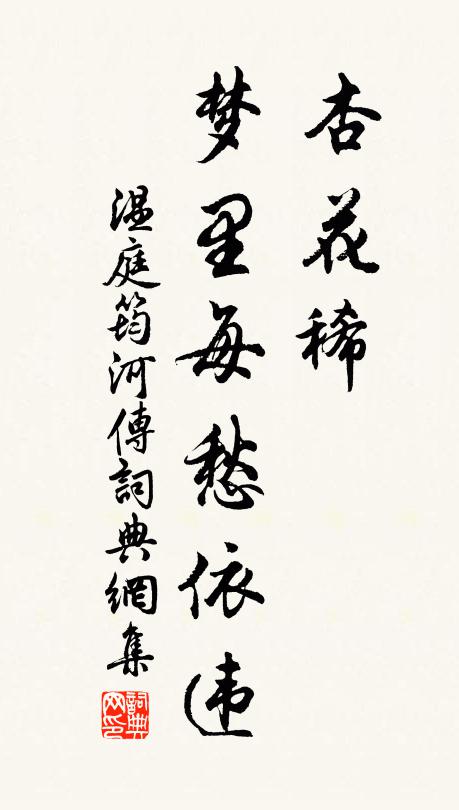 杏花稀
梦里每愁依违
温庭筠河傳詞典網集
詞典
网印